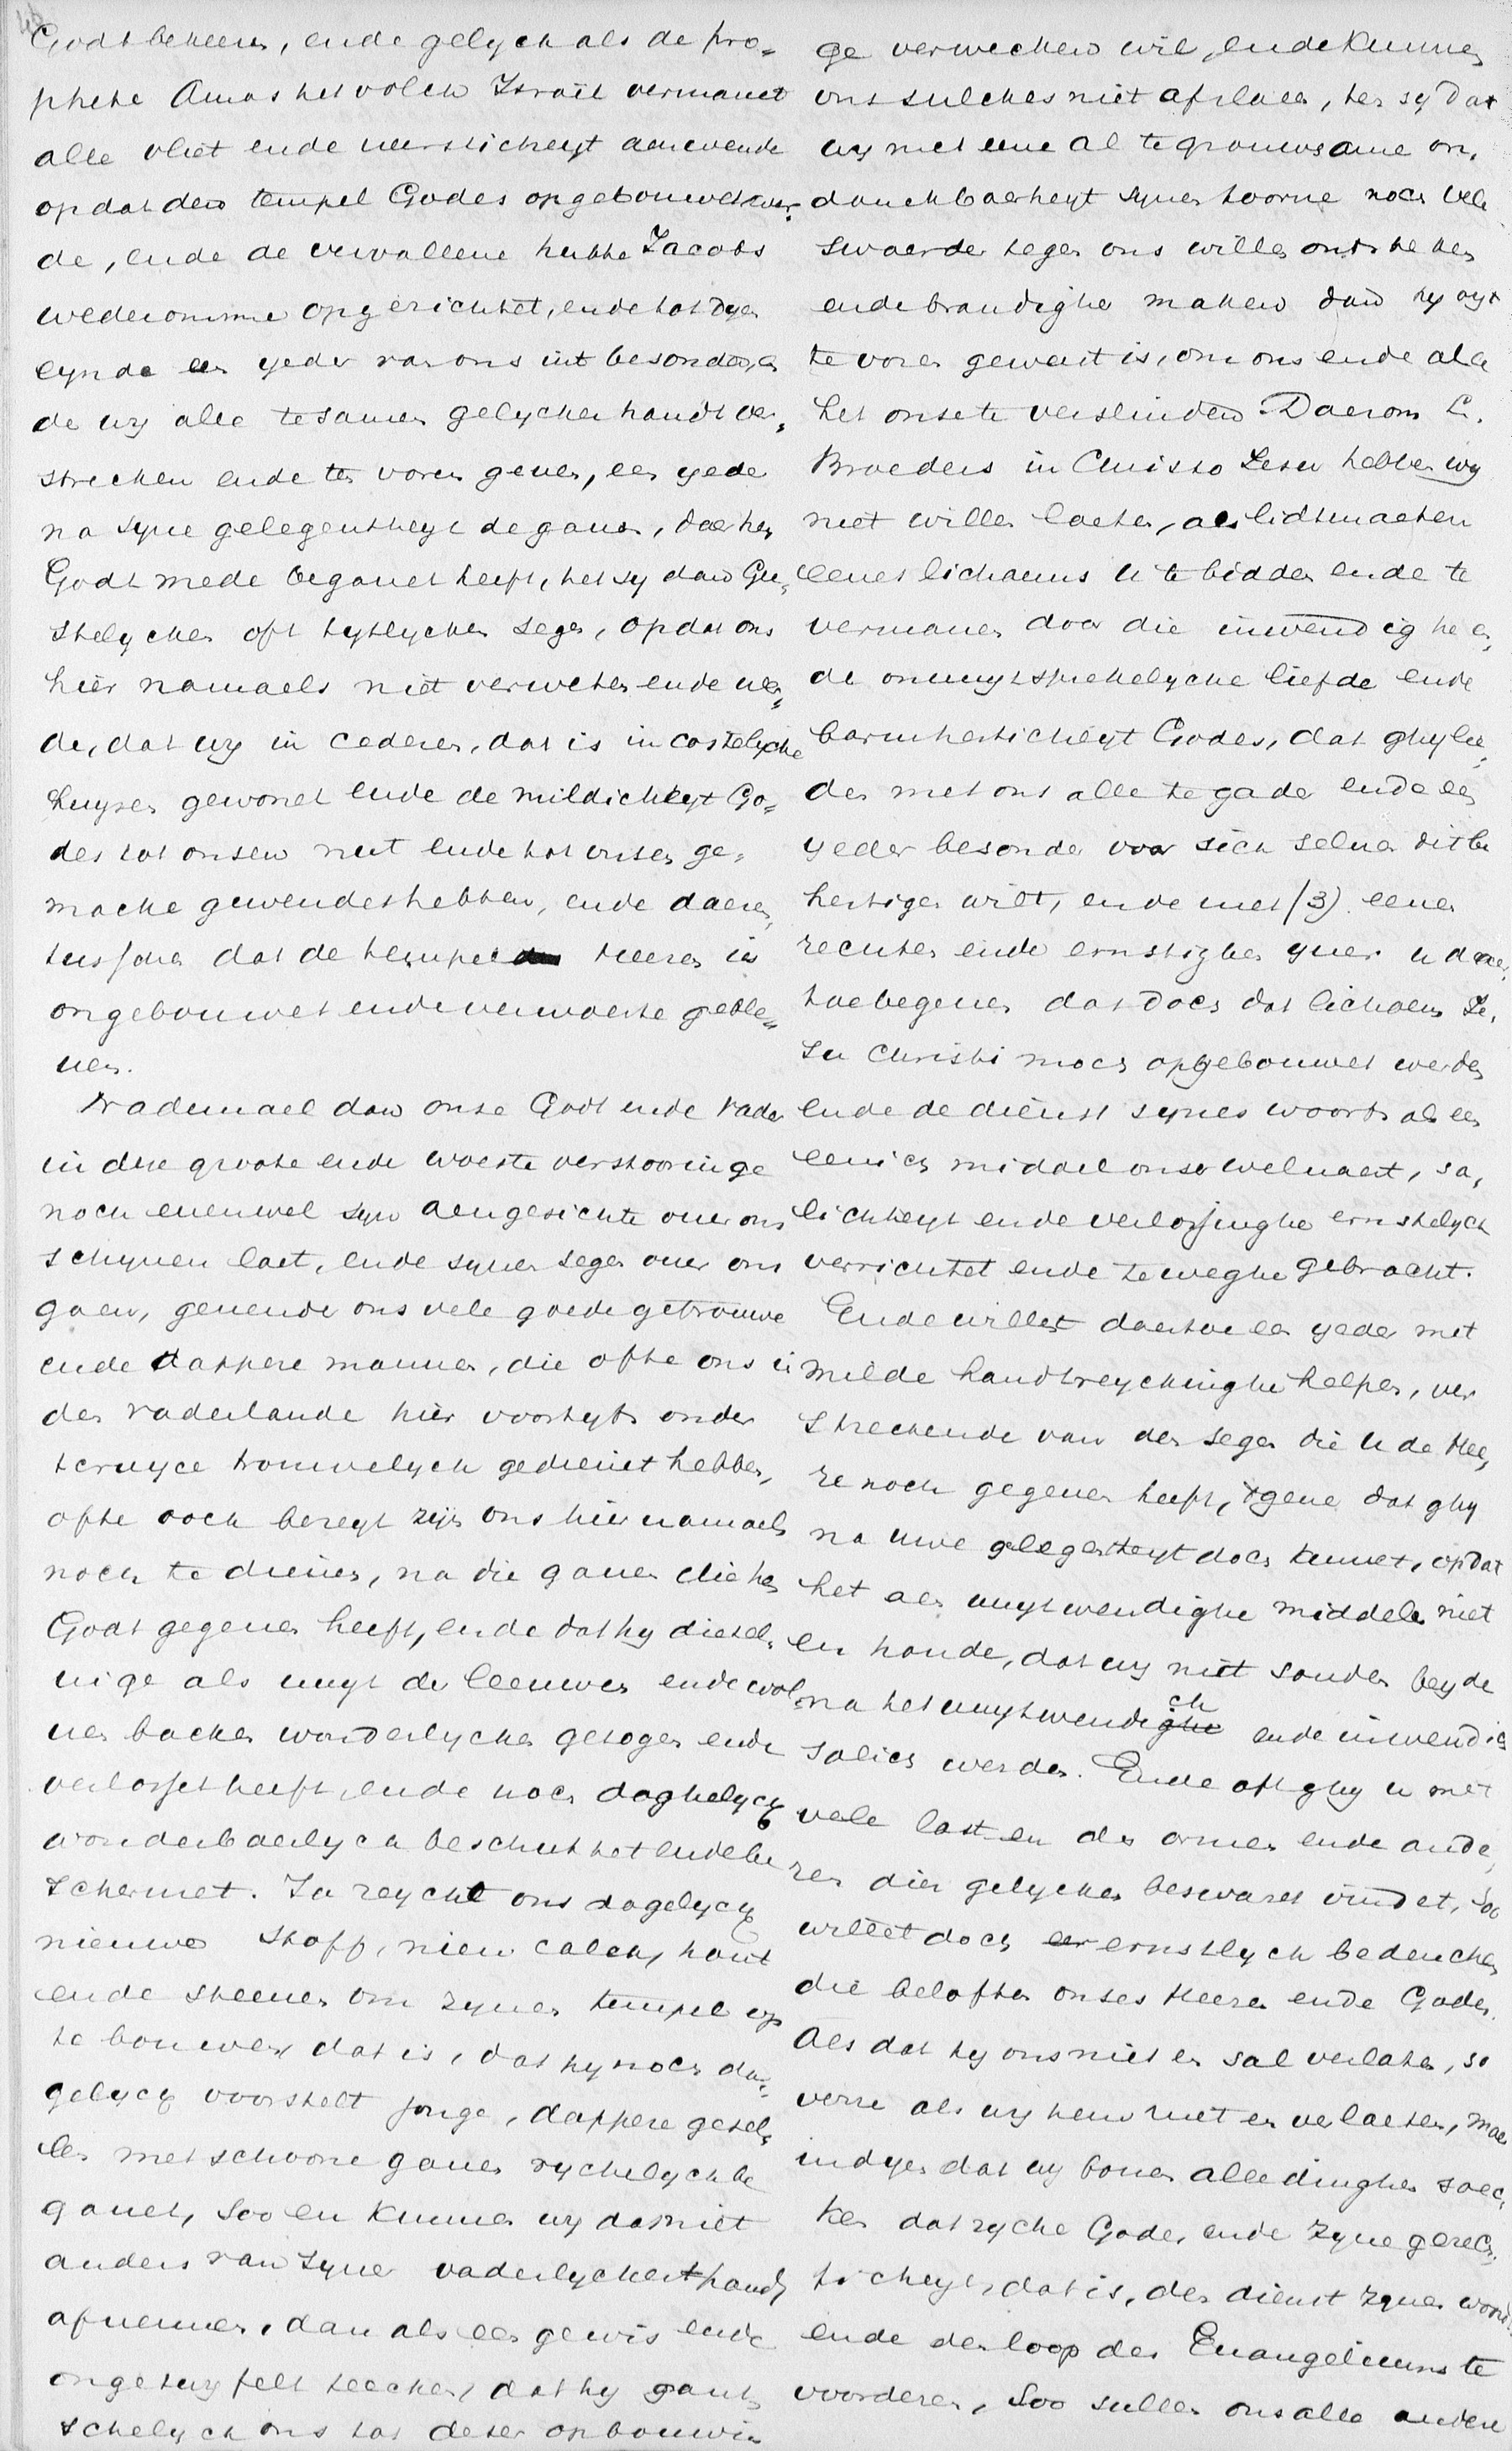 Godt bekeeren, ende gelyck als de pro=
phete Amos het volck Israël vermanet
alle vliet ende neersticheyt aenwende
op dat den tempel Godes opgebouwet wer=
de, ende de vervallene hutte Jacobs
wederomme opgerichtet, ende tot dyen
eynde een yeder van ons int besonder, en
de wy alle tesamen gelycker handt ver=
strecken ende te voren geuen, een yeder
na syne gelegentheyt de gauen, daer hem
Godt mede begauet heeft, het sy dan Gee=
stelycken oft tytlycken segen, opdat ons
hier namaels niet verweten ende wer=
de, dat wy in cederen, dat is in costelycke
huysen gewonet ende de mildicheyt Go=
des tot onsen nut ende tot onsen ge=
macke gewendet hebben, ende daeren
tusschen dat de tempel des Heeren is
ongebouwet ende verwoeste geble=
uen.
Nademael dan onse Godt ende Vader
in dese groote ende woeste verstooringe
noch euenwel syn aengesichte ouer ons
schynen laet, ende synen segen ouer ons
gaen, geuende ons vele goede getrouwe
ende dappere mannen, die ofte ons in
des vaderlande hier voortyts onder
t cruyce trouwelyck gedienet hebben,
ofte oock bereyt zijn ons hier namaels
noch te dienen, na die gauen die hen
Godt gegeuen heeft, ende dat hy diesel=
uige als uuyt der leeuwen ende wol=
uen backen wonderlycken getogen ende
verlosset heeft, ende noch daghelycx
wonderbaerlyck beschuttet ende be
schermet. Ja reyckt ons dagelycx
nieuwe stoff, nieu calck, hout
ende steenen om zynen tempel op
te bouwen, dat is, dat hy noch da=
gelycx voorstelt jonge, dappere gesel=
len met schoone gauen rychelyck be
gauet, Soo en kunnen wy dat niet
anders van syner vaderlycker handt
afnemen, dan als een gewis ende
ongetwyfelt teecken, dat hy gants
schelyck ons tot deser opbouwin
ge verwecken wil, ende kunnen
ons sulckes niet afslaen, ten sy dat
wy met eene al te grouwsame on=
danckbaerheyt synen toorne noch vele
swaerder tegen ons willen ontsteken
ende brandigher maken dan hy oyt
te voren geweest is, om ons ende alle
het onse te verslinden. Daerom L.
Broeders in Christo Jesu hebben wy
niet willen laeten, als lidtmaeten
eenes lichaems U te bidden ende te
vermanen door die inwendighe en=
de onuuytspreckelycke liefde ende
barmherticheyt Godes, dat ghylie=
den met ons alle te gader ende een
yeder besonder voor sich seluen dit be
hertigen wilt, ende met (3) eenen
rechten ende ernstighen yuer u daer
toe begeuen dat doch dat lichaem Je=
su Christi moch opgebouwet werden
ende de dienst synes woorts als een
eenich middel onser welvaert, sa=
licheyt ende verlossinghe ernstelyck
verrichtet ende te weghe gebracht.
Ende willet daertoe een yeder met
milde handtreyckinghe helpen, ver
streckende van den segen die U de Hee=
re noch gegeuen heeft, tgene dat ghy
na uwe gelegenheyt doch kunnet, opdat
het aen uuytwendighe middelen niet
en houde, dat wy niet souden beyde
na het uuytwendich ende inwendich
salich werden. Ende oft ghy u met
vele lasten der armen ende ande=
ren dier gelycken beswaret vindet, soo
willet doch ernstlyck bedencken
die beloften onses Heeren ende Godes.
Als dat hy ons niet en sal verlaten, so
verre als wy hem niet en verlaeten, maer
indyen dat wy bouen alle dinghen soec=
ken dat rycke Godes, ende zyne gerech=
ticheyt, dat is, den dienst zynes woorts
ende den loop des Euangeliums te
voorderen, Soo sullen ons alle andere